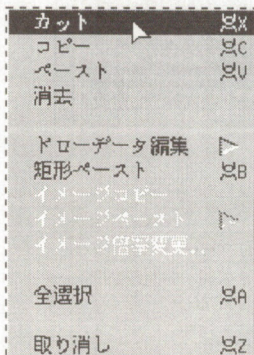 カット 図X
コピー 図C
ペースト 図V
消去
ドローデータ編集
矩形ペースト 図B
イメージコピー
イメージペースト
イメージ倍率変更..
全選択 図A
取り消し 図Z